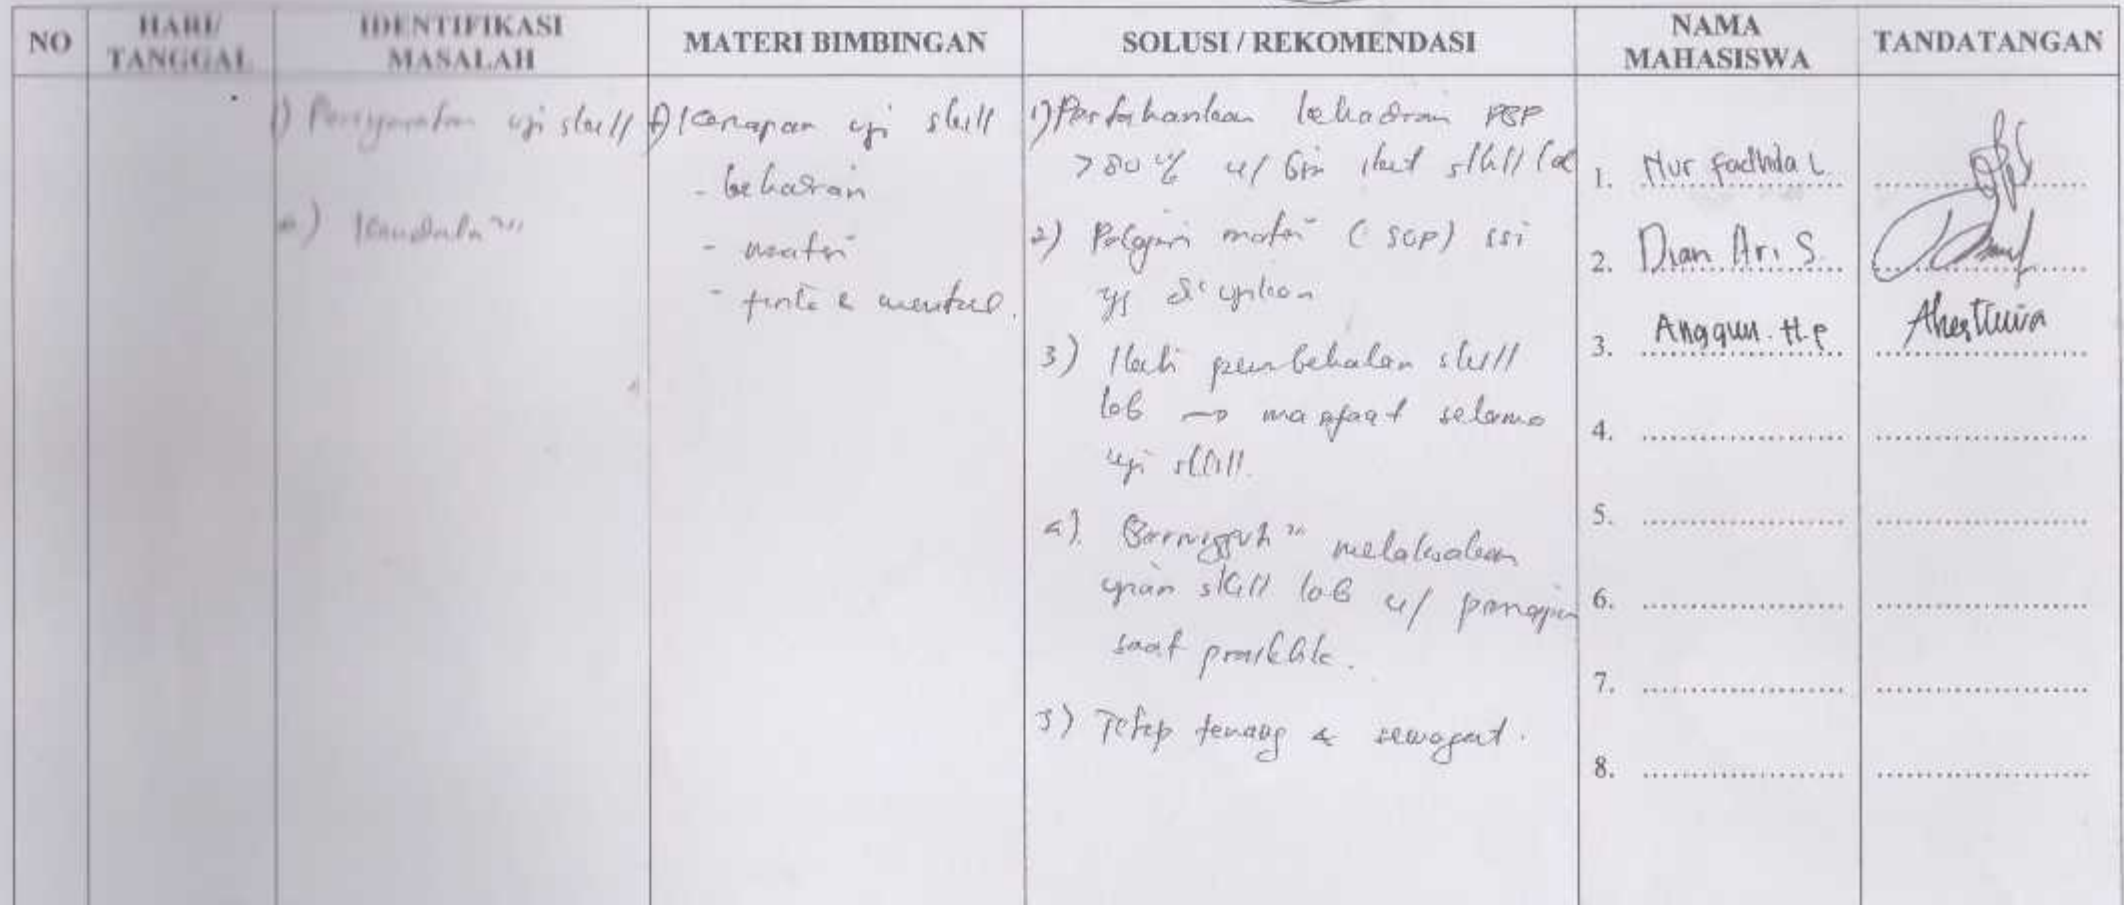 NO
HARI/
TANGGAL
IDENTIFIKASI
MASALAH
MATERI BIMBINGAN
SOLUSI / REKOMENDASI
NAMA
MAHASISWA
TANDATANGAN
1) uji skill
1) uji skill
- kehadiran
- materi
- & mental.
1) Pertahankan kehadiran PBP
> 80 % u/ ikut skill lab
2) Pelajari materi ( SOP )
yg diujikan
3) Ikuti pembekalan skill
lab → manfaat selama
uji skill.
melaksanakan
ujian skill lab u/
saat praktik.
Tetap tenang & semangat.
1. Nur Fadhida L
2. Dian Ari S.
3. Anggun. H.P
4.
5.
6.
7.
8.